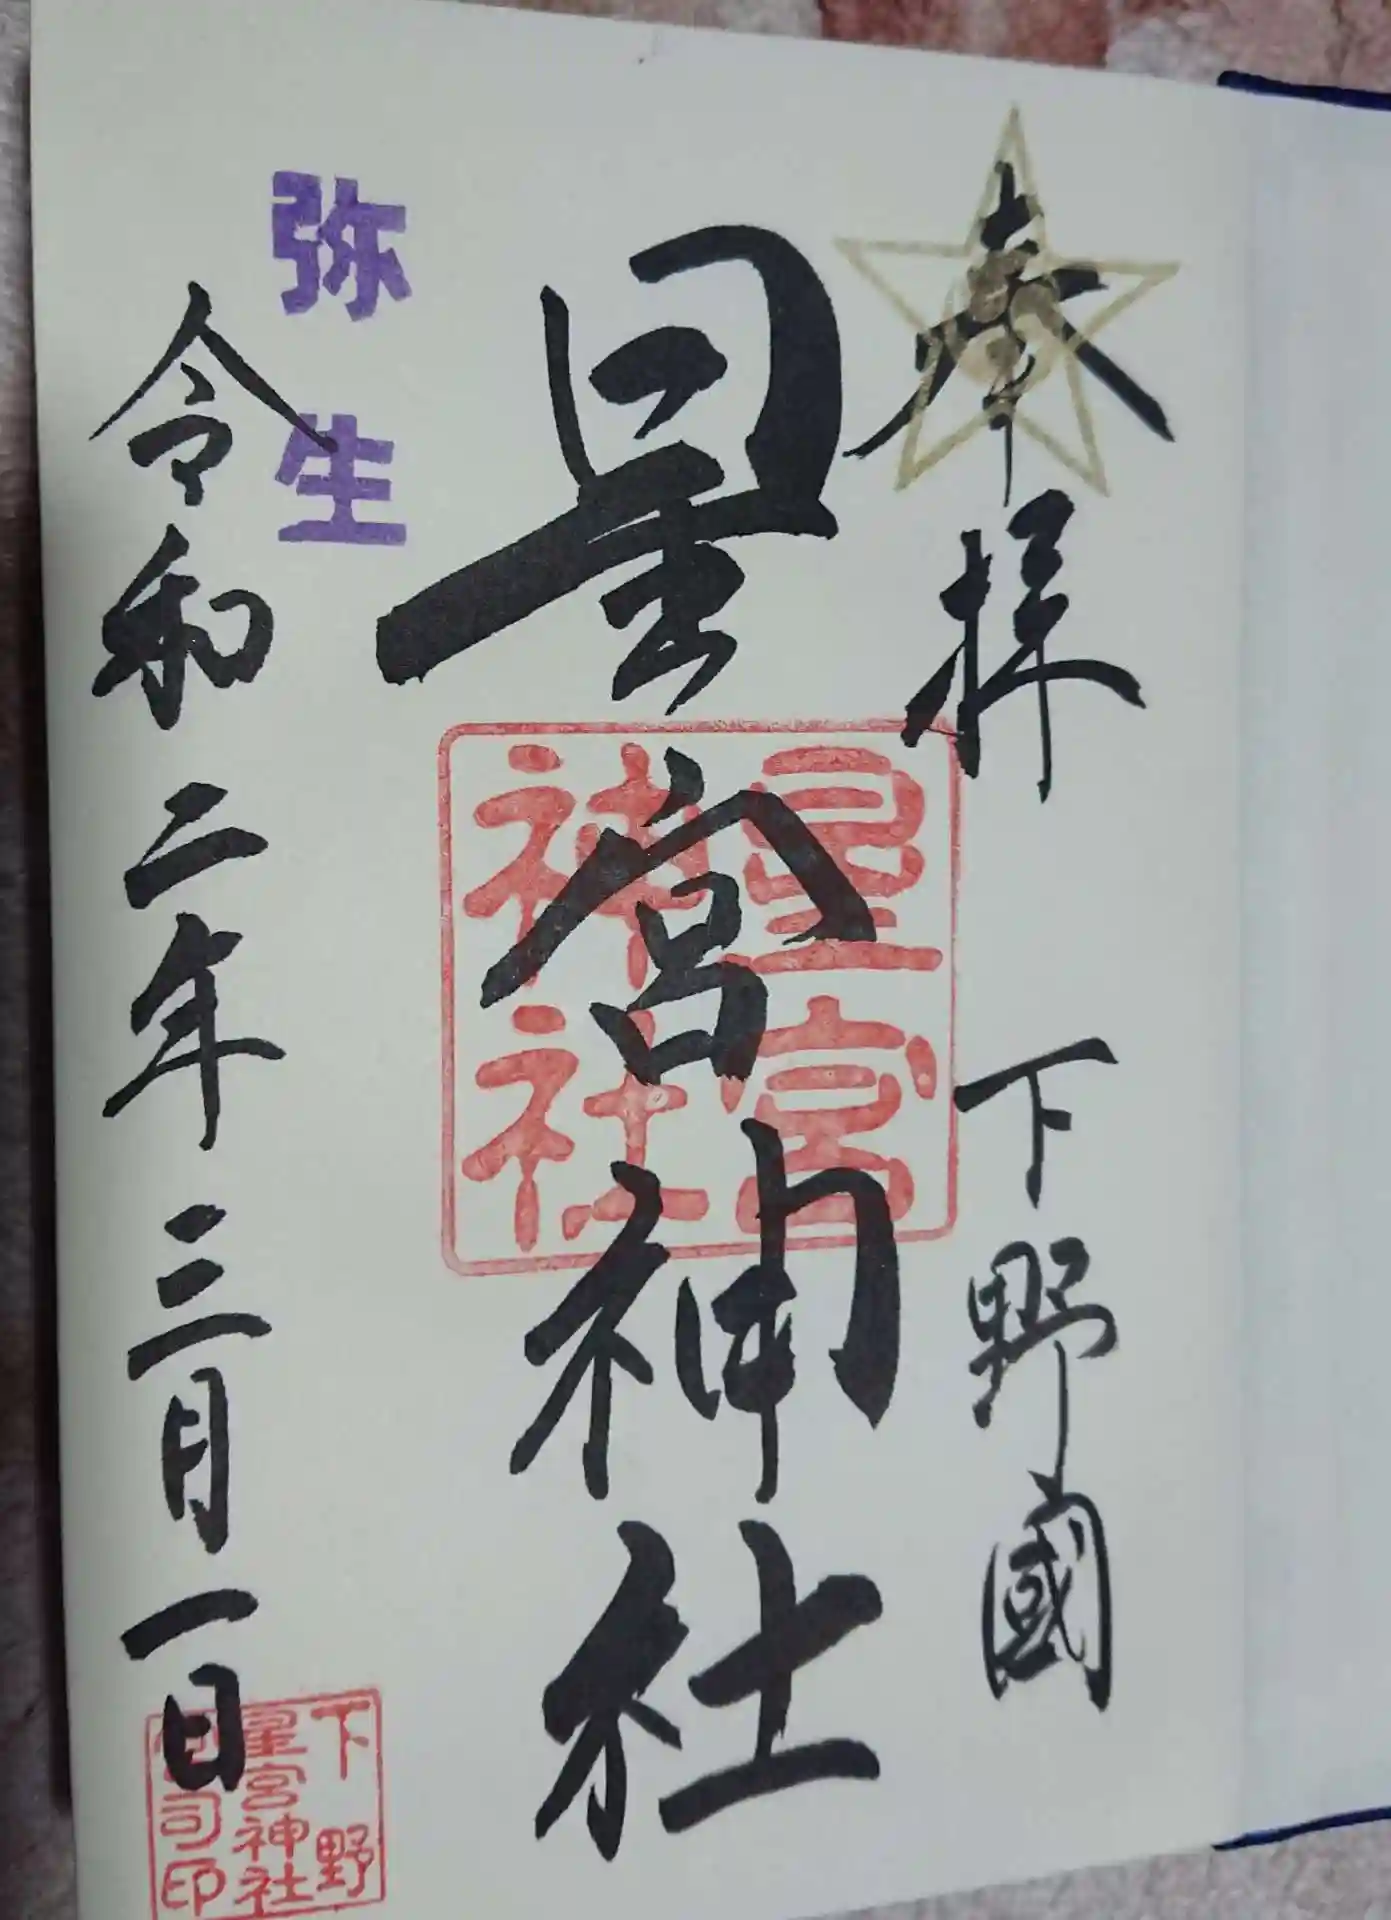 奉拝 下野國
星宮神社
星宮
神社
弥生
令和二年三月一日
下野
星宮神社
宮司印